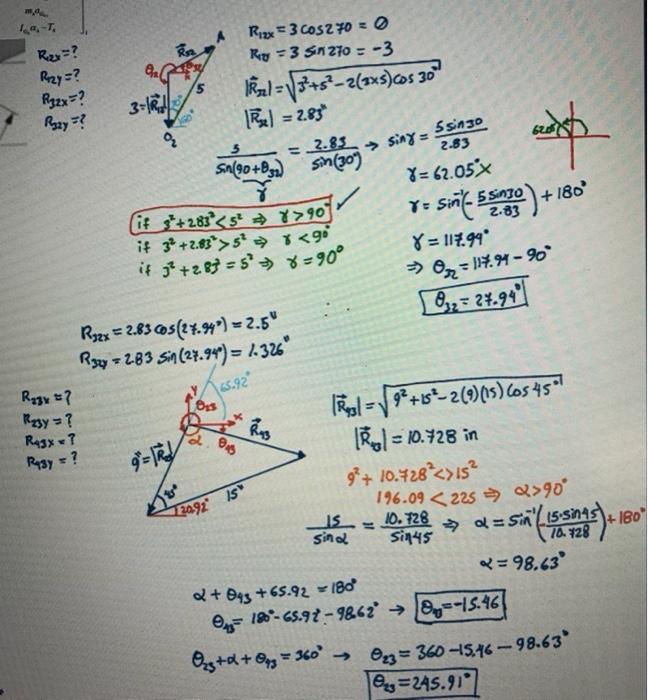 R₁₂ₓ=?
R₁₂y=?
R₃₂ₓ=?
R₃₂y=?
A
5
30°
60°
O₂
R₁₂ₓ = 3 cos270 = 0
R₁₂y = 3 Sin270 = -3
|R₃₂| = √3²+5²-2(3×5)cos 30°
|R₃₂| = 2.83"
5/sin(90+θ₃₂) = 2.83/sin(30°) → sinγ = 5 sin30/2.83
γ
γ = 62.05° X
γ = sin⁻¹(-5 sin30/2.83) + 180°
γ = 117.94°
⇒ θ₃₂ = 117.94 - 90°
θ₃₂ = 27.94°
if 3²+2.83²<5² ⇒ γ>90° ✓
if 3²+2.83²>5² ⇒ γ<90°
if 3²+2.83²=5² ⇒ γ=90°
R₃₂ₓ = 2.83 cos(27.94°) = 2.5"
R₃₂y = 2.83 Sin(27.94°) = 1.326"
R₂₃ₓ=?
R₂₃y=?
R₄₃ₓ=?
R₄₃y=?
65.92°
y
x
θ₂₃
α
θ₄₃
R₄₃
45°
15"
20.92°
|R₄₃| = √9²+15²-2(9)(15) cos 45°
|R₄₃| = 10.728 in
9²+10.728²<>15²
196.09 < 225 ⇒ α>90°
15/sinα = 10.728/sin45 ⇒ α = sin⁻¹(-15·sin45/10.728) + 180°
α = 98.63°
α + θ₄₃ + 65.92 = 180°
θ₄₃ = 180°-65.92-98.62° → θ₄₃ = -15.46
θ₂₃ + α + θ₄₃ = 360° → θ₂₃ = 360-15.46-98.63°
θ₂₃ = 245.91°